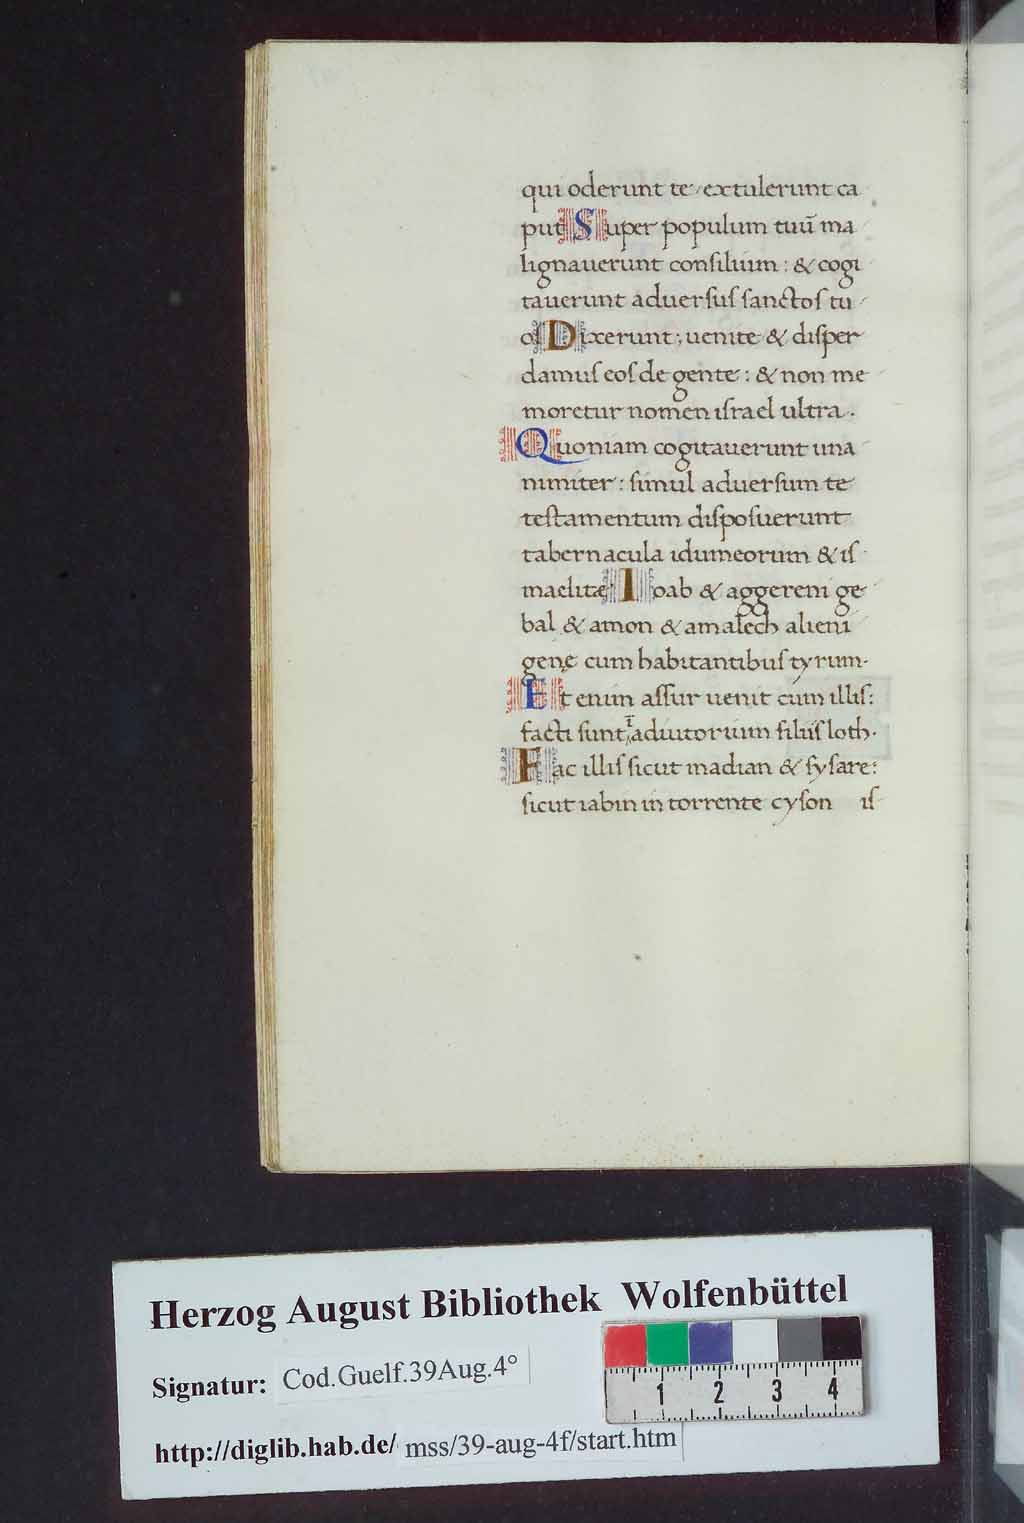 qui oderunt te extulerunt ca
put Super populum tuū ma
lignauerunt consilium : & cogi
tauerunt aduersus sanctos tu
os Dixerunt : uenite & disper
damus eos de gente : & non me
moretur nomen israel ultra .
Quoniam cogitauerunt una
nimiter : simul aduersum te
testamentum disposuerunt
tabernacula idumeorum & is
maelitæ Ioab & aggereni ge
bal & amon & amalech alieni
genę cum habitantibus tyrum .
Et enim assur uenit cum illis :
facti sunt ī adiutorium filiis loth .
Fac illis sicut madian & sysare :
sicut iabin in torrente cyson is
Herzog August Bibliothek Wolfenbüttel
Signatur: Cod.Guelf.39Aug.4°
http://diglib.hab.de/ mss/39-aug-4f/start.htm
1 2 3 4